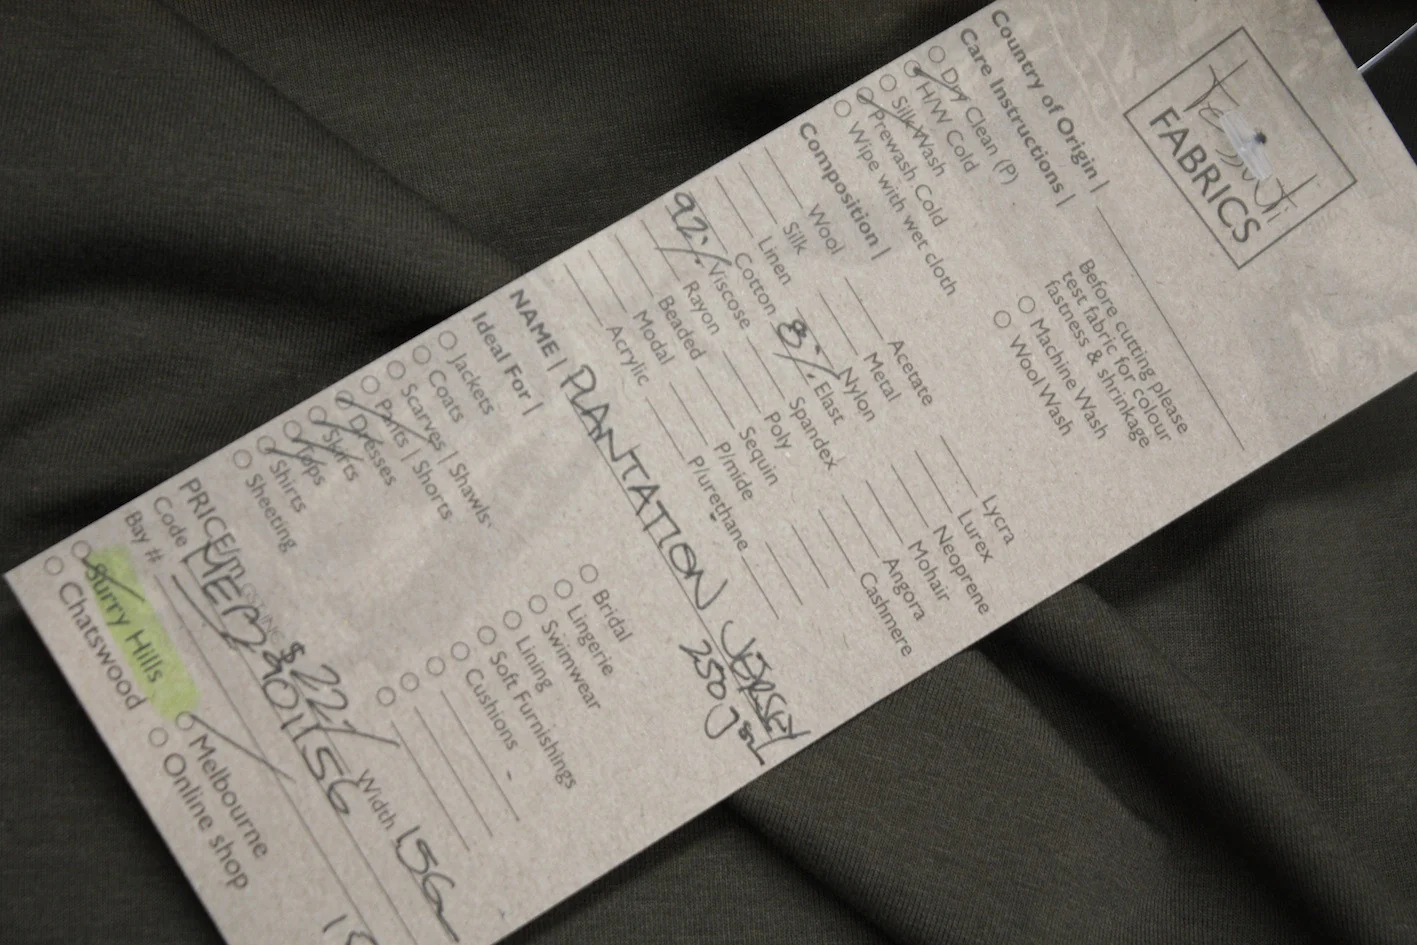 Tessuti
FABRICS
Country of Origin |
Care Instructions |
Dry Clean (P)
H/W Cold
Silk Wash
Prewash Cold
Wipe with wet cloth
Before cutting please
test fabric for colour
fastness & shrinkage
Machine Wash
Wool Wash
Composition |
Wool
Silk
Linen
Cotton
92% Viscose
Rayon
Beaded
Modal
Acrylic
Acetate
Metal
Nylon
8% Elast
Spandex
Poly
Sequin
P/mide
P/urethane
Lycra
Lurex
Neoprene
Mohair
Angora
Cashmere
NAME | PLANTATION JERSEY
250gsm
Ideal For |
Jackets
Coats
Scarves | Shawls
Pants | Shorts
Dresses
Skirts
Tops
Shirts
Sheeting
Bridal
Lingerie
Swimwear
Lining
Soft Furnishings
Cushions
PRICE/m $22/
Width 156
Code
Bay #
Surry Hills
Chatswood
Melbourne
Online shop